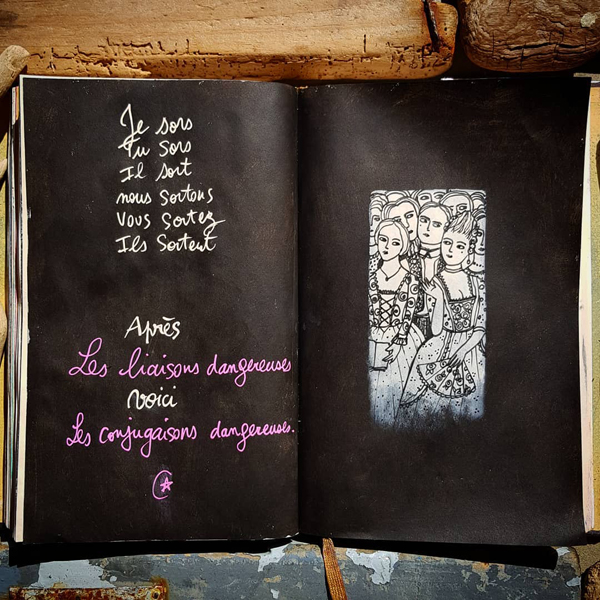 Je sors
Tu sors
Il sort
nous sortons
vous sortez
Ils sortent
Après
Les liaisons dangereuses
voici
Les conjugaisons dangereuses.